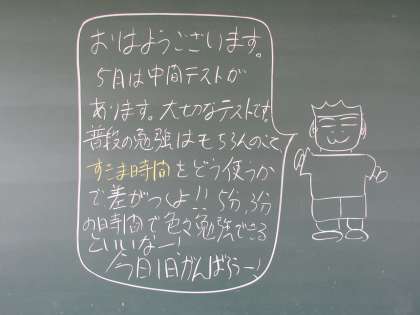 おはようございます。
5月は中間テストが
あります。大切なテストです
普段の勉強はもちろんのこと
すきま時間をどう使うか
で差がつくよ!! 5分、3分
の時間で色々勉強できる
といいなー!
今日1日がんばろー!